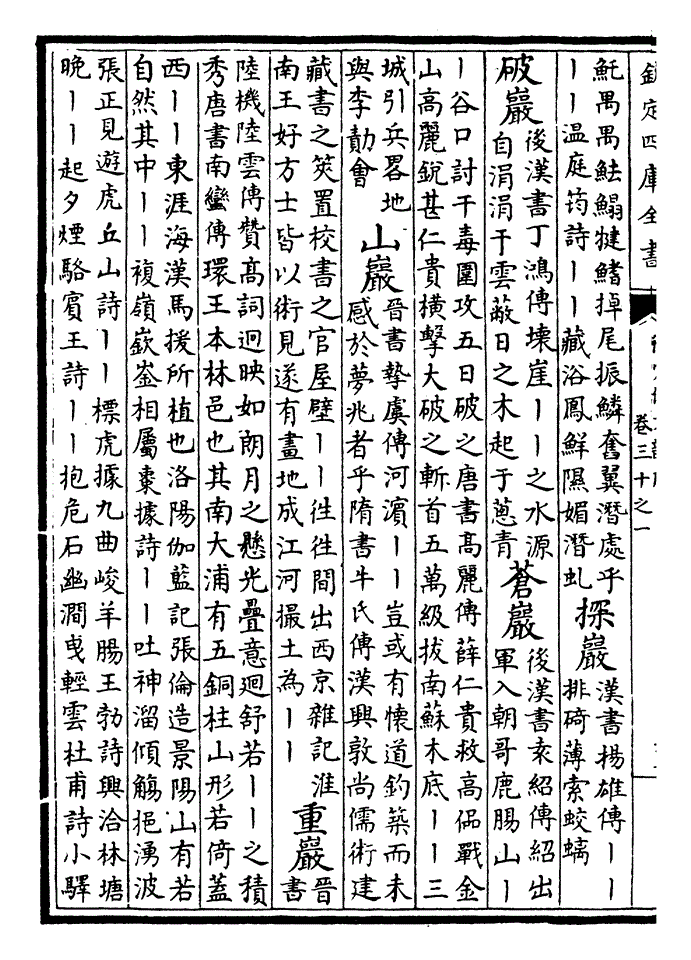 欽定四庫全書
卷三十之一
魠禺禺魼鰨揵鰭掉尾振鱗奮翼潛處乎
丨丨温庭筠詩丨丨藏浴鳳鮮隰媚潛虬
探巖
漢書揚雄傳丨丨
排碕薄索蛟螭
破巖
後漢書丁鴻傳壞崖丨丨之水源
自涓涓干雲蔽日之木起于蔥青
蒼巖
後漢書袁紹傳紹出
軍入朝哥鹿腸山丨
丨谷口討干毒圍攻五日破之唐書髙麗傳薛仁貴救高偘戰金
山高麗銳甚仁貴横擊大破之斬首五萬級拔南蘇木底丨丨三
城引兵畧地
與李勣會
山巖
晉書摯虞傳河濵丨丨豈或有懷道釣築而未
感於夢兆者乎隋書牛氏傳漢興敦尚儒術建
藏書之筴置校書之官屋壁丨丨徃徃間出西京雜記淮
南王好方士皆以術見遂有畫地成江河撮土為丨丨
重巖
晉
書
陸機陸雲傳贊髙詞迥映如朗月之懸光疊意迴舒若丨丨之積
秀唐書南蠻傳環王本林邑也其南大浦有五銅柱山形若倚蓋
西丨丨東涯海漢馬援所植也洛陽伽藍記張倫造景陽山有若
自然其中丨丨複嶺嶔崟相屬棗據詩丨丨吐神溜傾觴挹湧波
張正見遊虎丘山詩丨丨標虎據九曲峻羊腸王勃詩興洽林塘
晚丨丨起夕煙駱賓王詩丨丨抱危石幽澗曳輕雲杜甫詩小驛